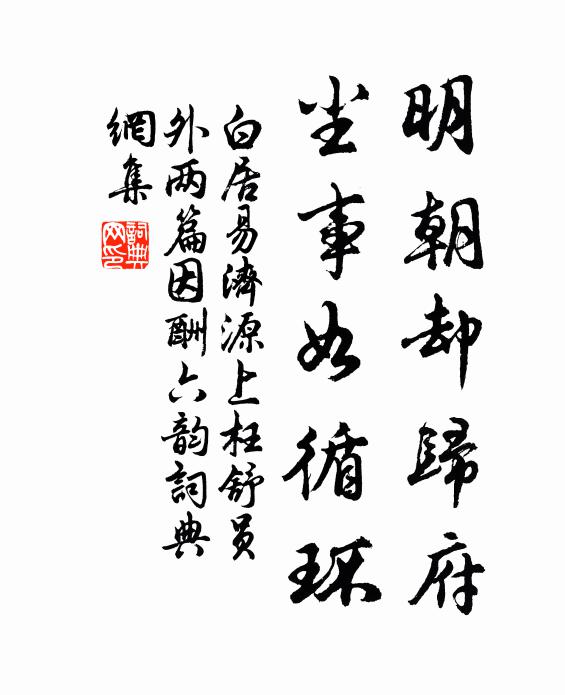 明朝却歸府
坐事如循环
白居易濟源上枉舒员
外两篇因酬六韵詞典
網集
詞典网印